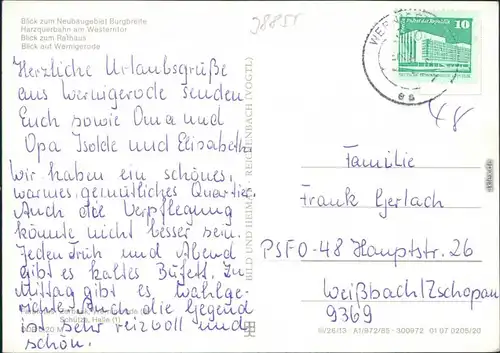 Blick zum Neubaugebiet Burgbreite
Harzquerbahn am Westerntor
Blick zum Rathaus
Blick auf Wernigerode
Herzliche Urlaubsgrüße
aus Wernigerode senden
Euch sowie Oma und
Opa Isolde und Elisabeth
Wir haben ein schönes,
warmes, gemütliches Quartier.
Auch die Verpflegung
könnte nicht besser sein.
Jeden Früh und Abend
gibt es kaltes Büfett. In
Mittag gibt es, Wahlge-
richte. Auch die Gegend
ist sehr reizvoll und
schön.
Schütze, Halle (1)
BILD UND HEIMAT REICHENBACH (VOGTL)
10
48
Familie
Frank Gerlach
PSF 0-48 Hauptstr. 26
Weißbach/Zschopau
9369
III/26/13 A1/972/85 300972 01 07 0205/20